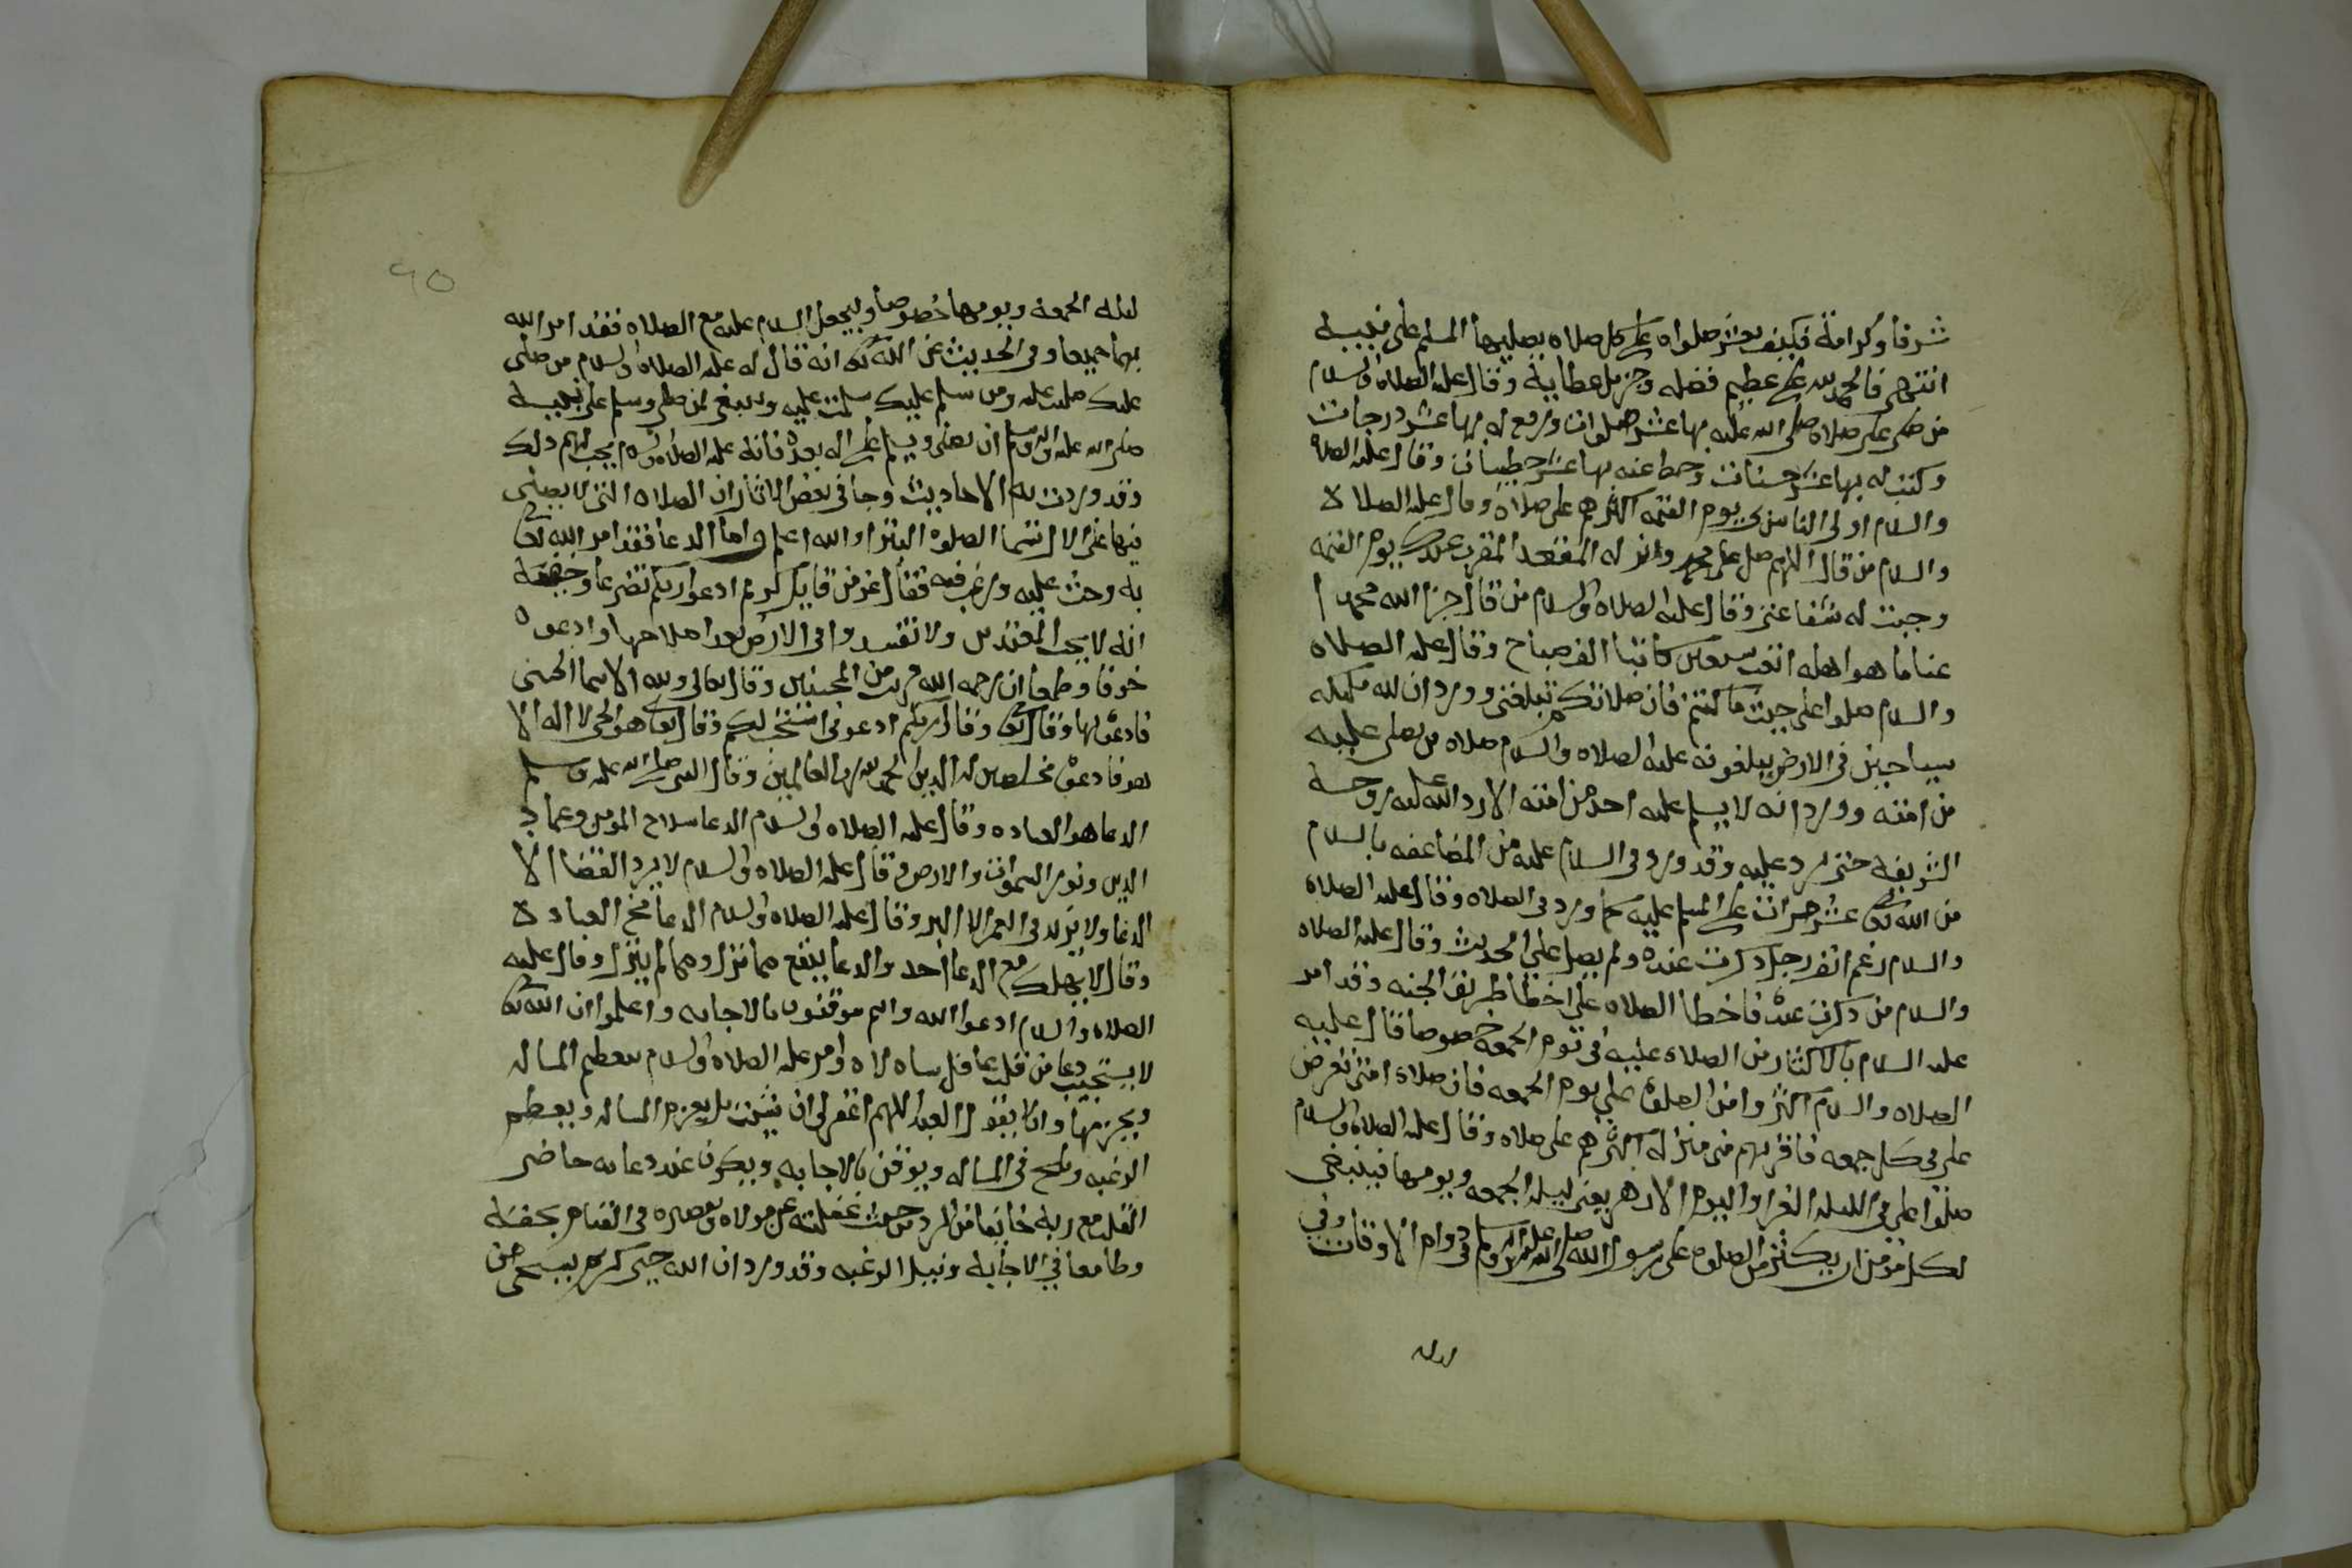 شرفا وكرامة فكيف بعشر صلوات على كل صلاه يصليها المسلم على نبيه
انتهى فالحمد لله على عظيم فضله وجزيل عطايه وقال عليه الصلاه والسلام
من صلى علي صلاه صلى الله عليه بها عشر صلوات ورفع له بها عشر درجات
وكتب له بها عشر حسنات وحط عنه بها عشر خطيات وقال عليه الصلاه
والسلام اولى الناس بي يوم القيمه اكثرهم علي صلاة وقال عليه الصلاة
والسلام من قال اللهم صل على محمد وانزله المقعد المقرب عندك يوم القيمه
وجبت له شفاعتي وقال عليه الصلاه والسلام من قال جزا الله محمدا
عنا ما هو اهله اتعب سبعين كاتبا الف صباح وقال عليه الصلاه
والسلام صلوا علي حيث ما كنتم فان صلاتكم تبلغني وورد ان لله ملايكه
سياحين في الارض يبلغونه عليه الصلاه والسلام صلاه من يصلي عليه
من امته وورد انه لا يسلم عليه احد من امته الا رد الله عليه روحه
الشريفة حتى يرد عليه وقد ورد في السلام عليه من المضاعفه بالسلام
من الله تعالى عشر مرات على المسلم عليه كما ورد في الصلاه وقال عليه الصلاه
والسلام رغم انف رجل ذكرت عنده ولم يصل علي الحديث وقال عليه الصلاه
والسلام من ذكرت عنده فاخطا الصلاه علي اخطا طريق الجنه وقد امر
عليه السلام بالاكثار من الصلاه عليه في يوم الجمعه خصوصا قال عليه
الصلاه والسلام اكثروا من الصلوة علي يوم الجمعه فان صلاة امتي تعرض
علي في كل جمعه فاقربهم مني منزلة اكثرهم علي صلاه وقال عليه الصلاه والسلام
صلوا علي في الليله الغرا واليوم الازهر يعني ليلة الجمعه ويومها فينبغي
لكل مومن ان يكثر من الصلوه على رسول الله صلى الله عليه واله وسلم في دوام الاوقات وفي
ليله
٦٥
ليله الجمعه ويومها خصوصا وليجعل السلام عليه مع الصلاه فقد امر الله
بهما جميعا وفي الحديث عن الله تعالى انه قال له عليه الصلاه والسلام من صلى
عليك صليت عليه ومن سلم عليك سلمت عليه وينبغي لمن صلى وسلم على نبيه
صلى الله عليه واله وسلم ان يصلي ويسلم على اله بعده فانه عليه الصلاه والسلام يحب لهم ذلك
وقد وردت به الاحاديث وجا في بعض الاثار ان الصلاه التي لا يصلى
فيها على الال تسما الصلوه البترا والله اعلم واما الدعا فقد امر الله تعالى
به وحث عليه ورغب فيه فقال عز من قايل كريم ادعوا ربكم تضرعا وخفية
انه لا يحب المعتدين ولا تفسدوا في الارض بعد اصلاحها وادعوه
خوفا وطمعا ان رحمه الله قريب من المحسنين وقال تعالى ولله الاسما الحسنى
فادعوه بها وقال تعالى وقال ربكم ادعوني استجب لكم وقال تعالى هو الحي لا اله الا
هو فادعوه مخلصين له الدين الحمد لله رب العالمين وقال النبي صلى الله عليه وسلم
الدعا هو العباده وقال عليه الصلاه والسلام الدعا سلاح المومن وعماد
الدين ونور السموات والارض وقال عليه الصلاه والسلام لا يرد القضا الا
الدعا ولا يزيد في العمر الا البر وقال عليه الصلاه والسلام الدعا مخ العبادة
وقال لا يهلك مع الدعا احد والدعا ينفع مما نزل ومما لم ينزل وقال عليه
الصلاه والسلام ادعوا الله وانتم موقنون بالاجابه واعلموا ان الله تعالى
لا يستجيب دعا من قلب غافل ساه لاه وامر عليه الصلاه والسلام بتعظيم المساله
وبجزمها وان لا يقول العبد اللهم اغفر لي ان شيت بل يعزم المساله ويعظم
الرغبه ويلح في المساله ويوقن بالاجابه ويكون عند دعايه حاضر
القلب مع ربه خايفا من الرد من حيث غفلته عن مولاه وتقصيره في القيام بحقه
وطامعا في الاجابه ونيل الرغبه وقد ورد ان الله حيي كريم يستحي من